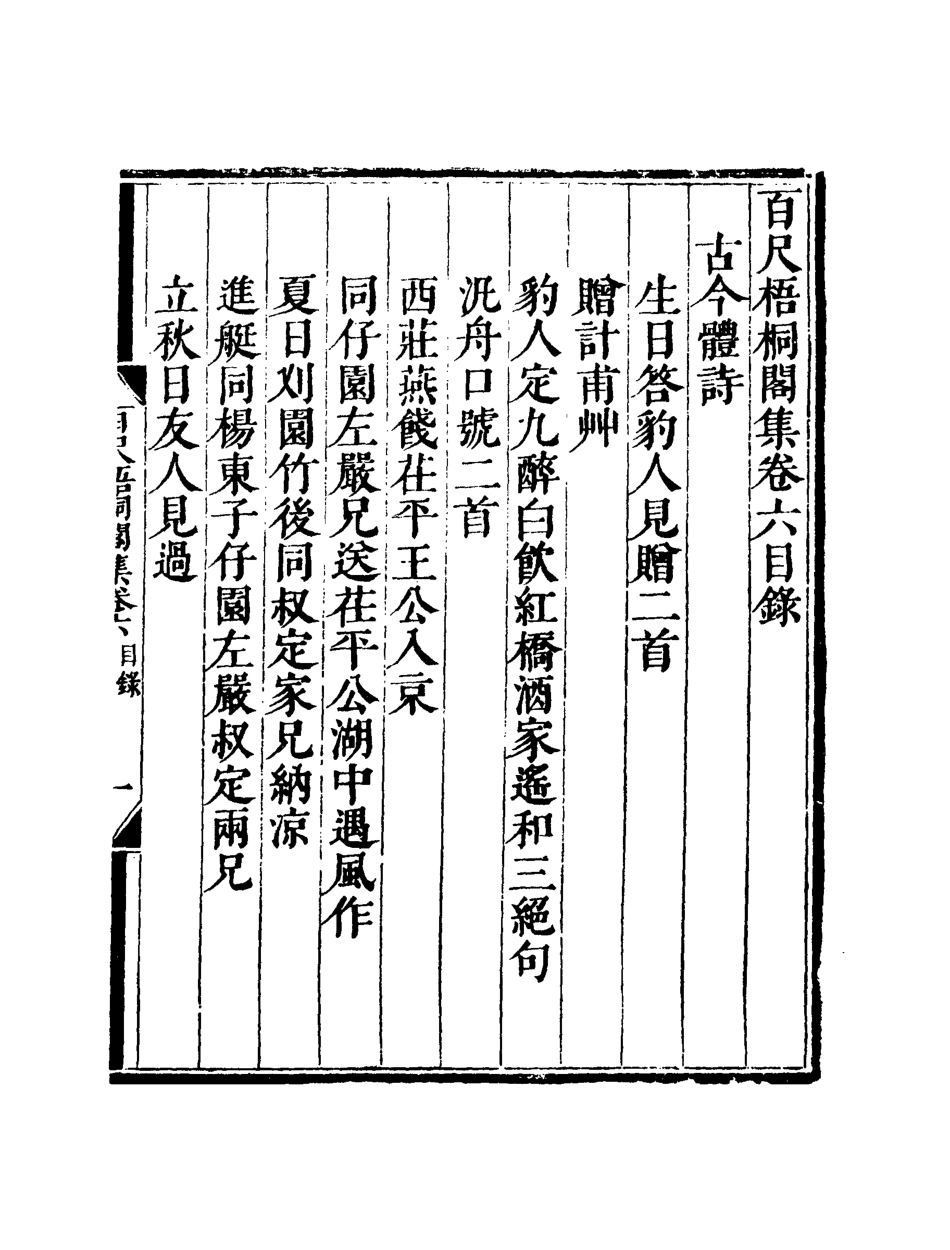 百尺梧桐閣集卷六目錄
古今體詩
生日答豹人見贈二首
贈計甫艸
豹人定九醉白飲紅橋酒家遙和三絕句
汎舟口號二首
西莊燕餞茌平王公入京
同仔園左嚴兄送茌平公湖中遇風作
夏日刈園竹後同叔定家兄納涼
進艇同楊東子仔園左嚴叔定兩兄
立秋日友人見過
百尺梧桐閣集卷六 目錄 一